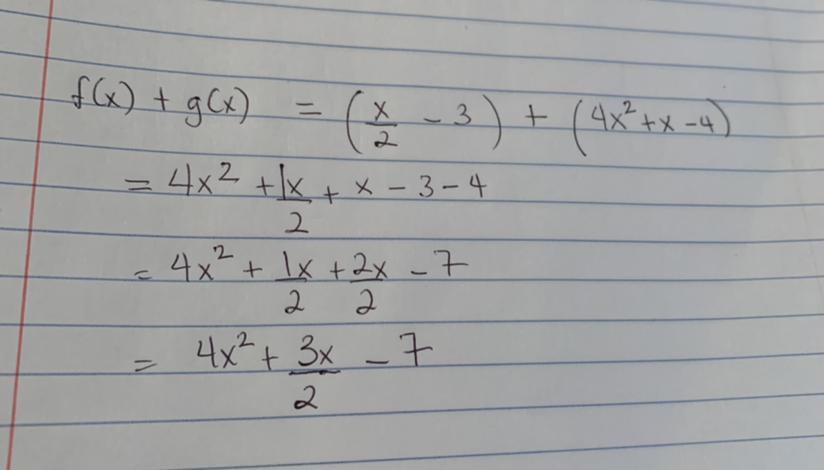 f(x) + g(x) = (x/2 - 3) + (4x² + x - 4)
= 4x² + 1x/2 + x - 3 - 4
= 4x² + 1x/2 + 2x/2 - 7
= 4x² + 3x/2 - 7